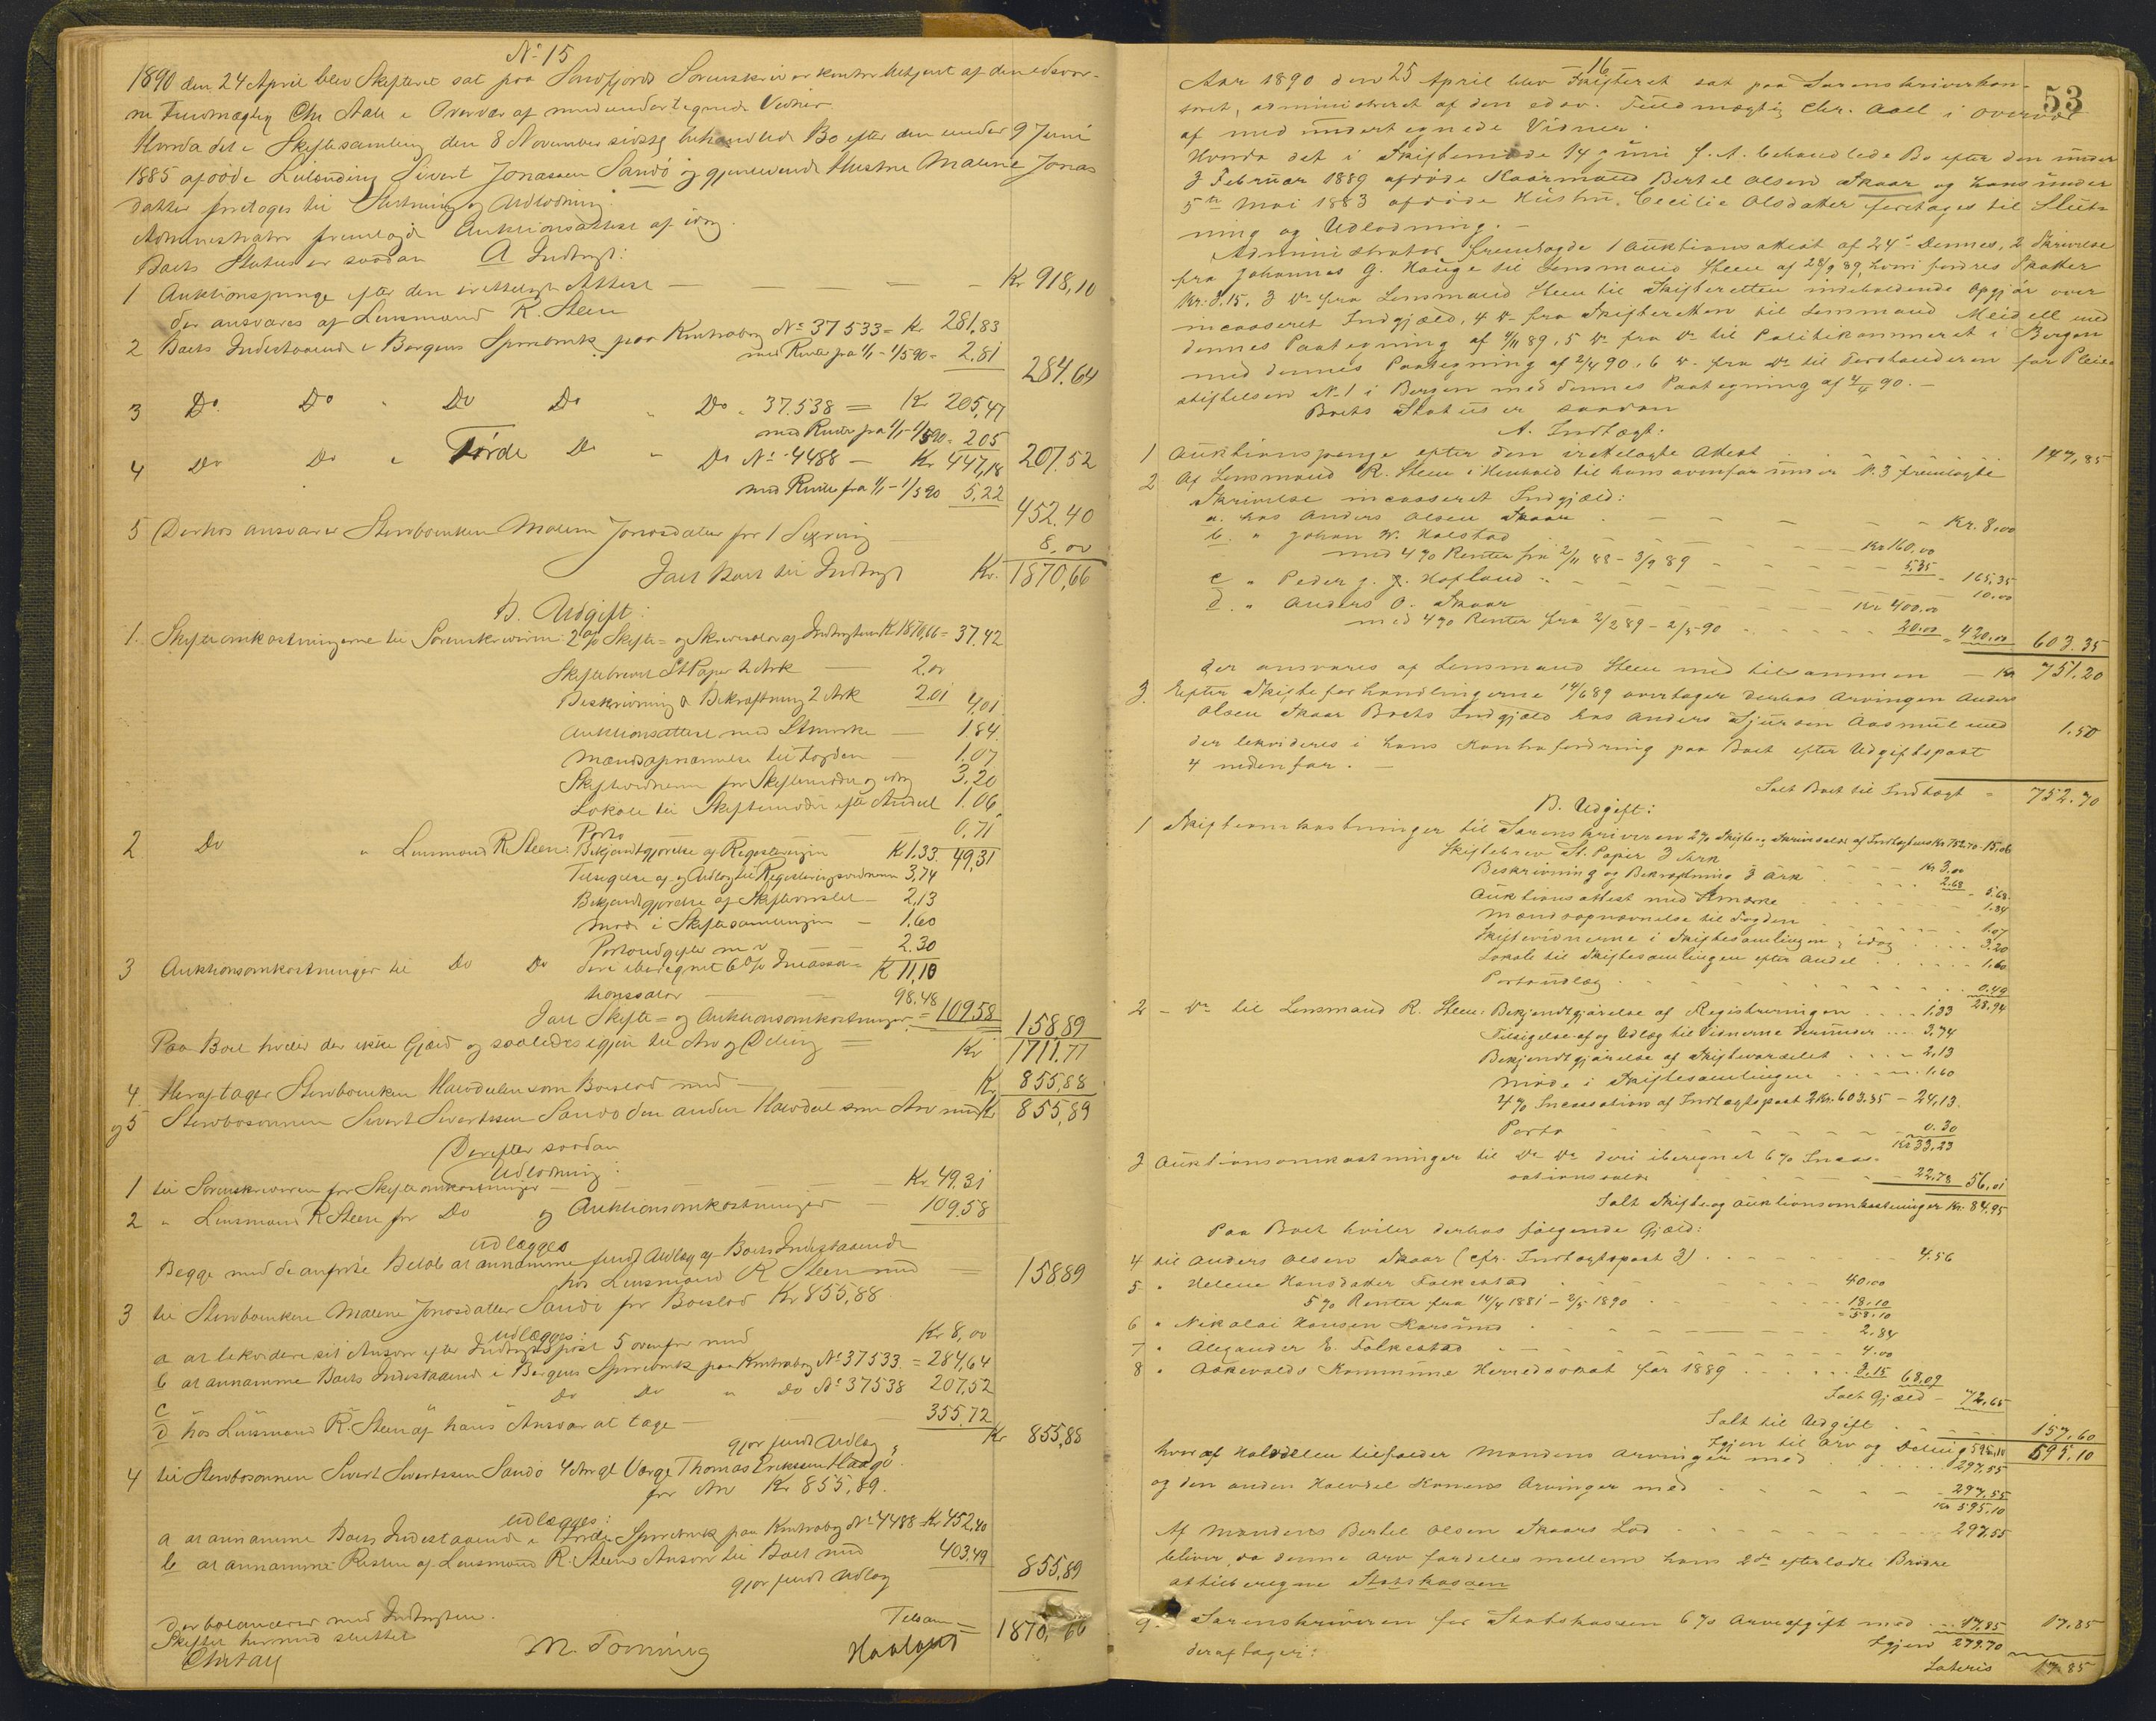 No 15
1890 den 24 April blev Skifteret sat paa Søndfjords Sorenskriverkontor betjent af den edsvor-
ne Fuldmægtig Chr Aall i Overvær af medundertegnede Vidner
Hvorda det i Skiftesamling den 8 November sidste behandlede Bo efter den under 9 Juni
1885 afdøde Leilænding Sivert Jonassen Sandø og gjenlevende Hustru Malene Jonas
datter foretoges til Slutning og Udlodning.
Administrator fremlagde Auktionsattest af idag.
Boets Status er saadan A Indtægt:
1 Auktionspenge efter den irettelagte Attest — — — — — Kr 918,10
der ansvares af Lensmand R. Steen
2 Boets Indestaaende i Bergens Sparebank paa Kontrabog No 37533 = Kr 281,83
med Renter fra 1/1 - 1/5 90 = 2,81
284.64
3 Do. Do " Do Do " Do " 37.538 = Kr 205,47
med Renter fra 1/1 - 1/5 90 = 205
207.52
4 Do Do i Førde Do " Do No 4488 — Kr 447,18
med Renter fra 1/1 - 1/5 90 5,22
452.40
5 Derhos ansvarer Stervboenken Malene Jonasdatter for 1 Sexring
8,00
Ialt Boet til Indtægt Kr. 1870,66
B. Udgift:
1. Skifteomkostningerne til Sorenskriveren: 2% Skifte- og Skriversalær af Indtægten Kr 1870,66 = 37.42
Skiftebrevet St Papir 2 Ark — 2.00
Beskrivning & Bekræftning 2 Ark 2.01 4,01
Auktionsattest med Stmærke — 1.84.
Mændsopnævnelse til Fogden — 1.07
Skiftevidnerne for Skiftemøder og idag 3.20
Lokale til Skiftemøder efter Andeel 1.06
Porto — — 0,71
2 Do " Lensmand R. Steen: Bekjendtgjørelse af Registreringen K 1.33. 49,31
Tilsigelse af og Udlæg til Registreringsvidnerne 3,74
Bekjendtgjørelse af Skiftevarslet — 2,13
Møde i Skiftesamlingen — 1.60
Portoudgifter m v — 2.30
K 11,10
3 Auktionsomkostninger til Do Do deri iberegnet 6% Incassa-
tionssalær — — 98.48
Ialt Skifte- og Auktionsomkostninger = 109.58
158 89
Paa Boet hviler der ikke Gjæld og saaledes igjen til Arv og Deling = Kr 1711.77
4. Heraf tager Stervboenken Halvdelen som Boeslod med — Kr 855,88
og 5 Stervbosønnen Sivert Sivertssen Sandø den anden Halvdel som Arv med Kr 855,89
Derefter saadan
Udlodning:
1 til Sorenskriveren for Skifteomkostninger — — — Kr 49.31
2 " Lensmand R Steen for Do og Auktionsomkostninger — 109,58
udlægges
Begge med de anførte Beløb at annamme fuldt Udlæg af Boets Indestaaende
hos Lensmand R Steen med = 158 89
3 til Stervboenken Malene Jonasdatter Sandø for Boeslod Kr 855,88
udlægges:
a at lekvidere sit Ansvar efter Indtægtspost 5 ovenfor med Kr 8,00
b at annamme Boets Indestaaende i Bergens Sparebank paa Kontrabog No 37533. = 284,64
c Do Do " Do No 37538 207,52
d hos Lensmand R. Steen af hans Ansvar at tage — 355.72
gjør fuldt Udlæg Kr 855,88
4 til Stervbosønnen Sivert Sivertssen Sandø 4 Ar gl Værge Thomas Erikssen Haage
for Arv Kr 855,89.
udlægges:
a at annamme Boets Indestaaende i Førde Sparebank paa Kontrabog No 4488 - Kr 452,40
b at annamme Resten af Lensmand R. Steens Ansvar til Boet med 403,49
gjør fuldt Udlæg 855,89
der balancerer med Indtægten. Tilsam = 1870,66
Skiftet hermed sluttet
Chr Aall M. Tonning Haaland
16
53
Aar 1890 den 25 April blev Skifteret sat paa Sorenskriverkon-
toret, administreret af den edsv. Fuldmægtig Chr. Aall i overvær
af med undertegnede Vidner.
Hvorda det i Skiftemøde 14 Juni f. A. behandlede Bo efter den under
3 Februar 1889 afdøde Kaarmand Bertel Olsen Skaar og hans under
5te Mai 1883 afdøde Hustru Cecilie Olsdatter foretages til Slut-
ning og Udlodning. —
Administrator fremlagde 1 Auktionsattest af 24de Dennes, 2 Skrivelse
fra Johannes G. Hauge til Lensmand Steen af 28/9 89, hvori fordres Skatter
Kr. 3.15, 3 Do fra Lensmand Steen til Skifteretten indeholdende Opgjør over
incasseret Indgjæld, 4 Do fra Skifteretten til Lensmand Meidell med
dennes Paategning af 4/11 89, 5 Do fra Do til Politikammeret i Bergen
med dennes Paategning af 2/4 90, 6 Do fra Do til Forstanderen for Pleie-
stiftelsen No 1 i Bergen med dennes Paategning af 90. —
Boets Status er saadan
A. Indtægt:
1 Auktionspenge efter den irettelagte Attest 147,85
2 Af Lensmand R. Steen i Henhold til hans ovenfor under N. 3 fremlagte
Skrivelse incasseret Indgjæld:
a. hos Anders Olsen Skaar — — — Kr. 8,00
b. " Johan W. Holstad — — — Kr 160,00
med 4% Renter fra 2/11 88 - 3/9 89 — 5,35 - 165,35
c " Peder J. J. Hofland " — — — 10.00
d. " Anders O. Skaar — — — Kr 400,00
med 4% Renter fra 2/2 89 - 2/5 90 20,00 = 420,00 603.35
der ansvares af Lensmand Steen med tilsammen — Kr 751.20
3. Efter Skifteforhandlingerne 14/6 89 overtager derhos Arvingen Anders
Olsen Skaar Boets Indgjæld hos Anders Sjursen Aasmul med 1.50
der lekvideres i hans Kontrafordring paa Boet efter Udgiftspost
4 nedenfor. —
Ialt Boet til Indtægt = 752.70
B. Udgift:
1 Skifteomkostninger til Sorenskriveren 2% Skifte- og Skriversalær af Indtægtens Kr 752.70 - 15,06
Skiftebrev St. Papir 3 Ark Kr 3,00
Beskrivning og Bekræftning 3 Ark 2.68 - 5,68
Auktionsattest med Stmærke 1.84
Mændsopnævnelse til Fogden 1.07
Skiftevidnerne i Skiftesamlingen & idag 3.20
Lokale til Skiftesamlingen efter Andel 1.60
Portoudlæg 0.49
28.94
2 - Do til Lensmand R. Steen: Bekjendtgjørelse af Registreringen 1,33
Tilsigelse af og Udlæg til Vidnerne herunder 3,74
Bekjendtgjørelse af Skiftevarselet 2,13
Møde i Skiftesamlingen 1.60
4% Incassation af Indtægtspost 2 Kr. 603.35 - 24,13.
Porto 0.30
Kr 33,23
3 Auktionsomkostninger til Do Do deri iberegnet 6% Incas-
sationssalær 22,78 56,01
Ialt Skifte og Auktionsomkostninger Kr. 84,95
Paa Boet hviler derhos følgende Gjæld:
4 til Anders Olsen Skaar (cfr. Indtægtspost 3) 4.56
5 " Helene Hansdatter Folkestad 40.00
5% Renter fra 14/4 1881 - 2/5 1890 18.10
= 58.10
6 " Nikolai Hansen Korsund 2.84
7 " Alexander E. Folkestad 4.00
8 " Askevolds Kommune Herredsskat for 1889 3.15 68,09
Ialt Gjæld - 72,65
Ialt til Udgift 157,60
Igjen til Arv og Deling 595,10 595,10
hvoraf Halvdelen tilfalder Mandens Arvinger med 297,55
og den anden Halvdel Konens Arvinger med 297,55
Kr 595,10
Af Mandens Bertel Olsen Skaars Lod 297,55
bliver, da denne Arv fordeles mellem hans 2de efterladte Brødre
at tilberegne Statskassen
9. Sorenskriveren for Statskassen 6% Arveafgift med 17,85 17,85
Igjen 279.70
deraf tager:
Lateris 17.85